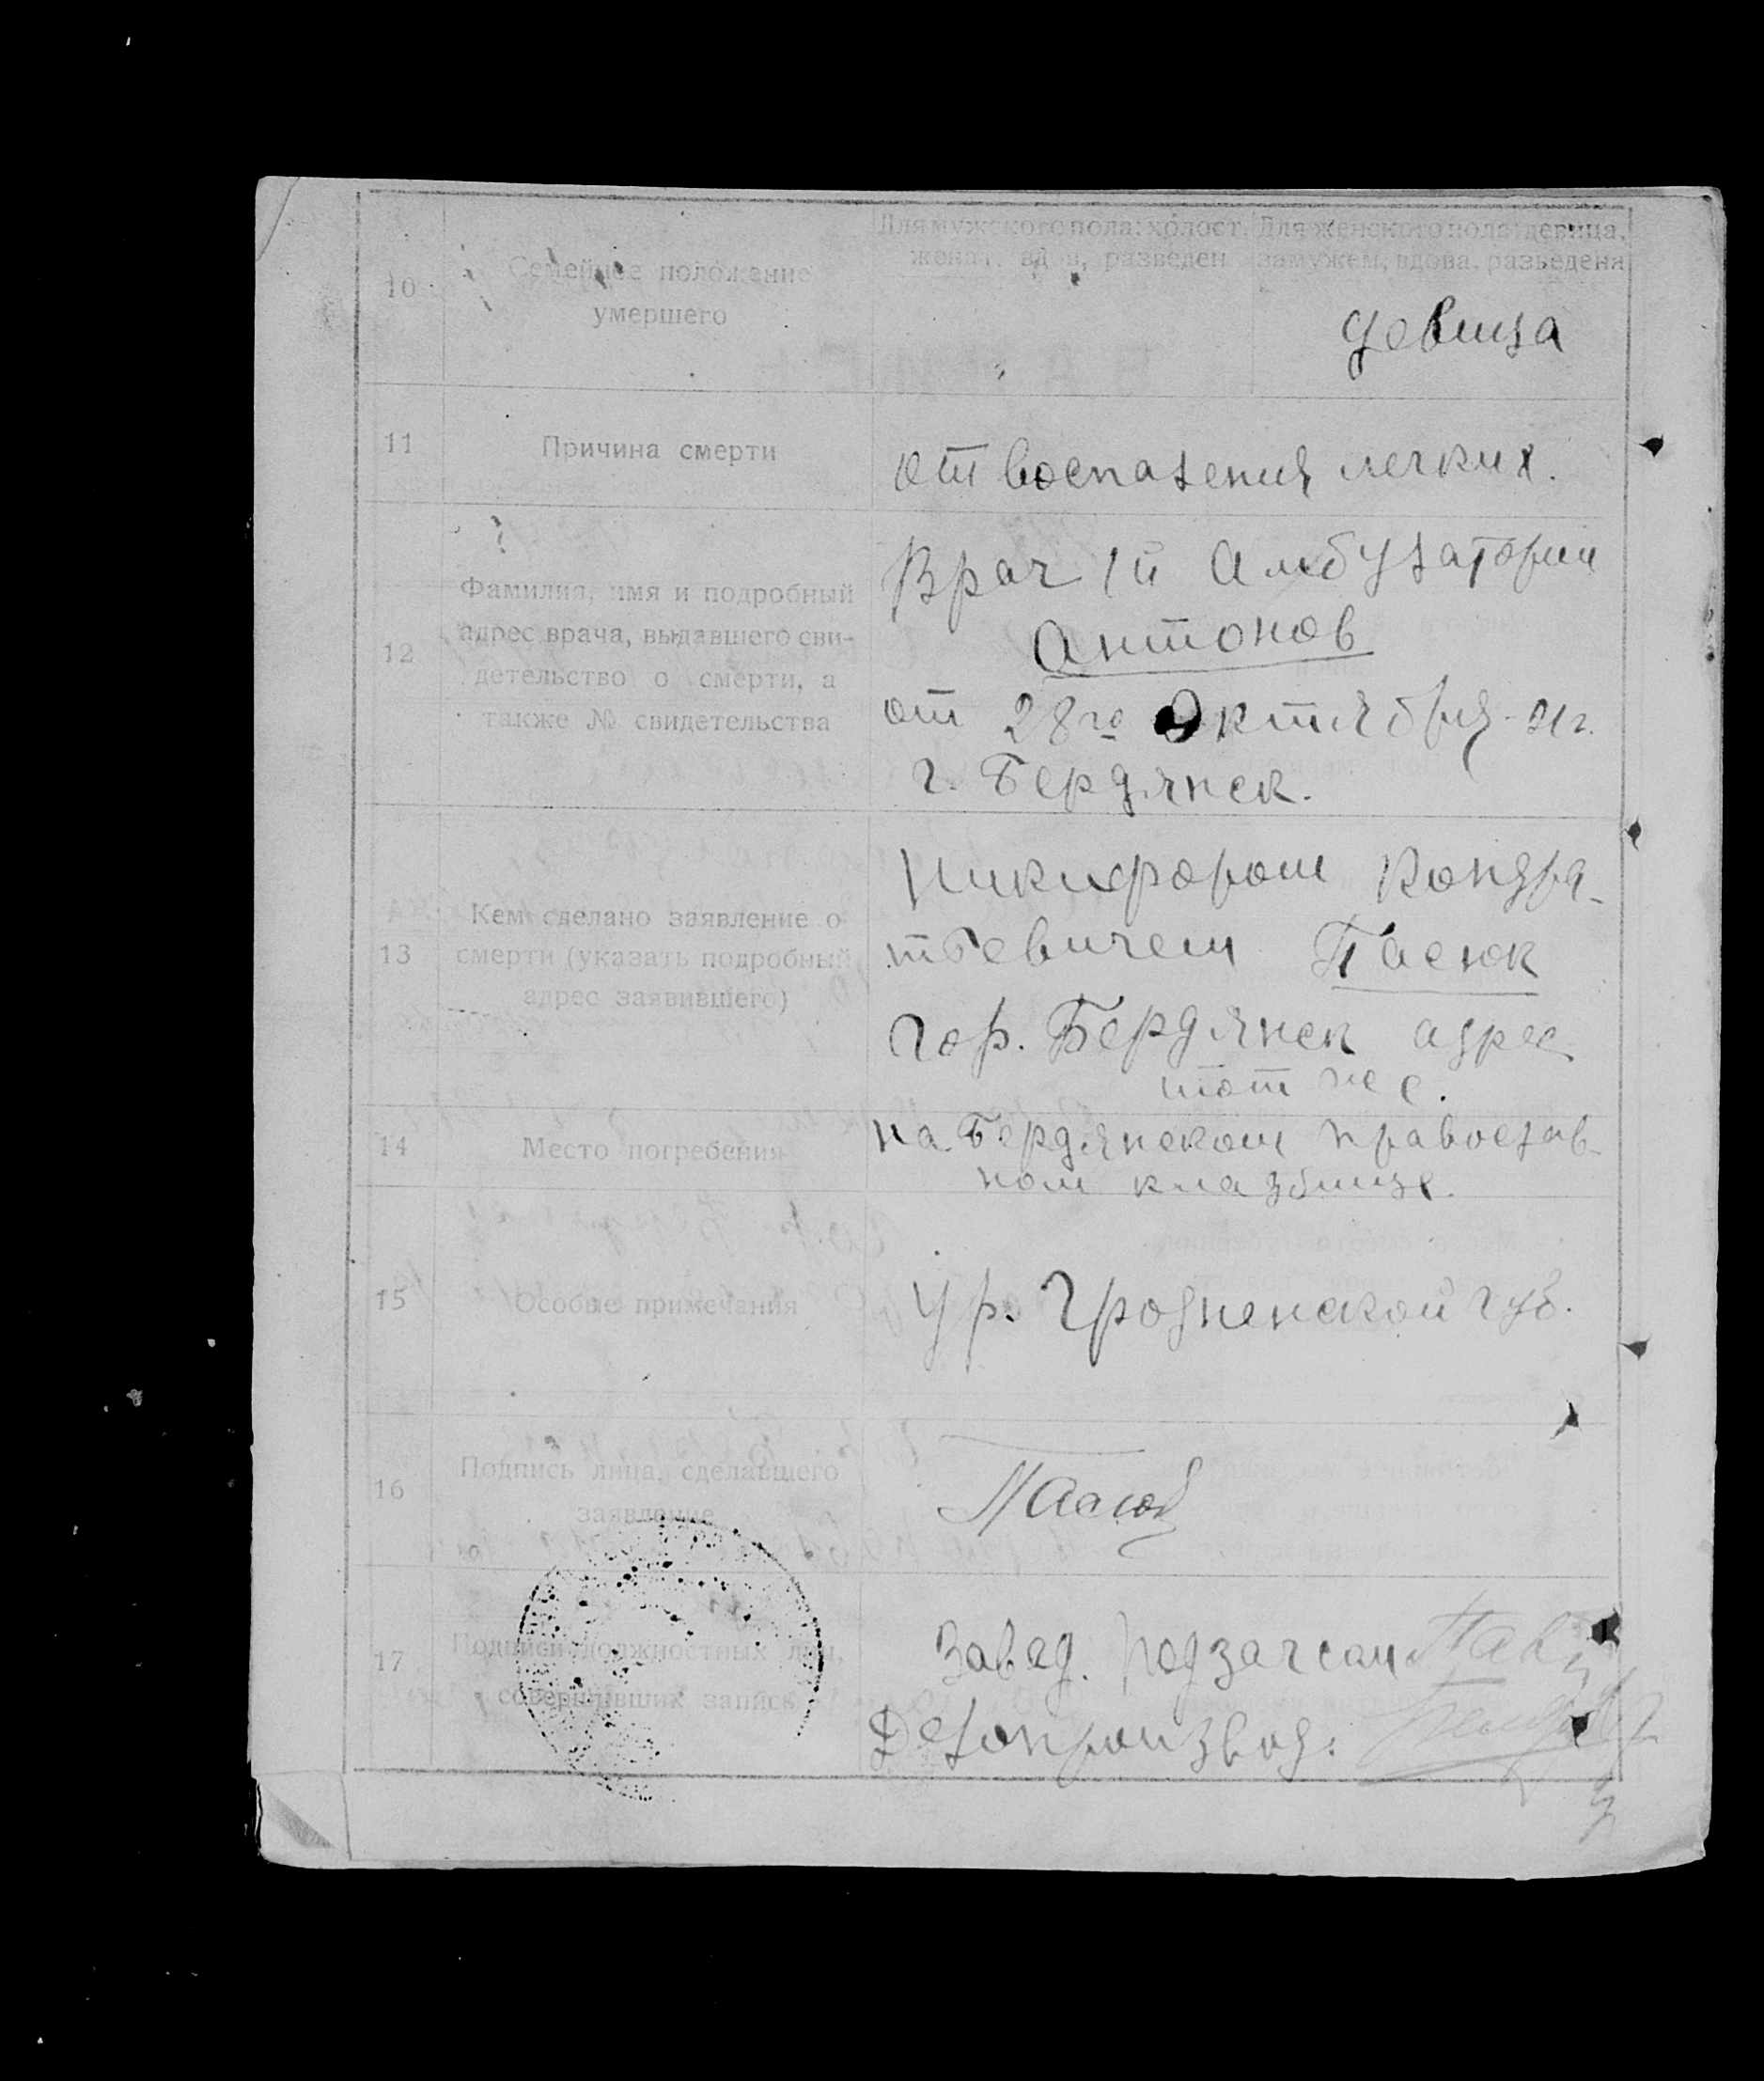 10
Семейное положение
умершего
Для мужского пола: холост,
женат, вдов, разведен
Для женского пола: девица,
замужем, вдова, разведена
девица
11
Причина смерти
от воспаления легких.
12
Фамилия, имя и подробный
адрес врача, выдавшего сви-
детельство о смерти, а
также № свидетельства
Врач 1й Амбулатории
Антонов
от 28го Октября 21г.
г. Бердянск.
13
Кем сделано заявление о
смерти (указать подробный
адрес заявившего)
Никифором Кондра-
тьевичем Пасюк
гор. Бердянск адрес
тот же.
14
Место погребения
на Бердянском православ-
ном кладбище.
15
Особые примечания
ур. Гродненской губ.
16
Подпись лица, сделавшего
заявление
Пасюк
17
Подписи должностных лиц,
совершивших запись
Завед. подзагсом
Делопроизвод: